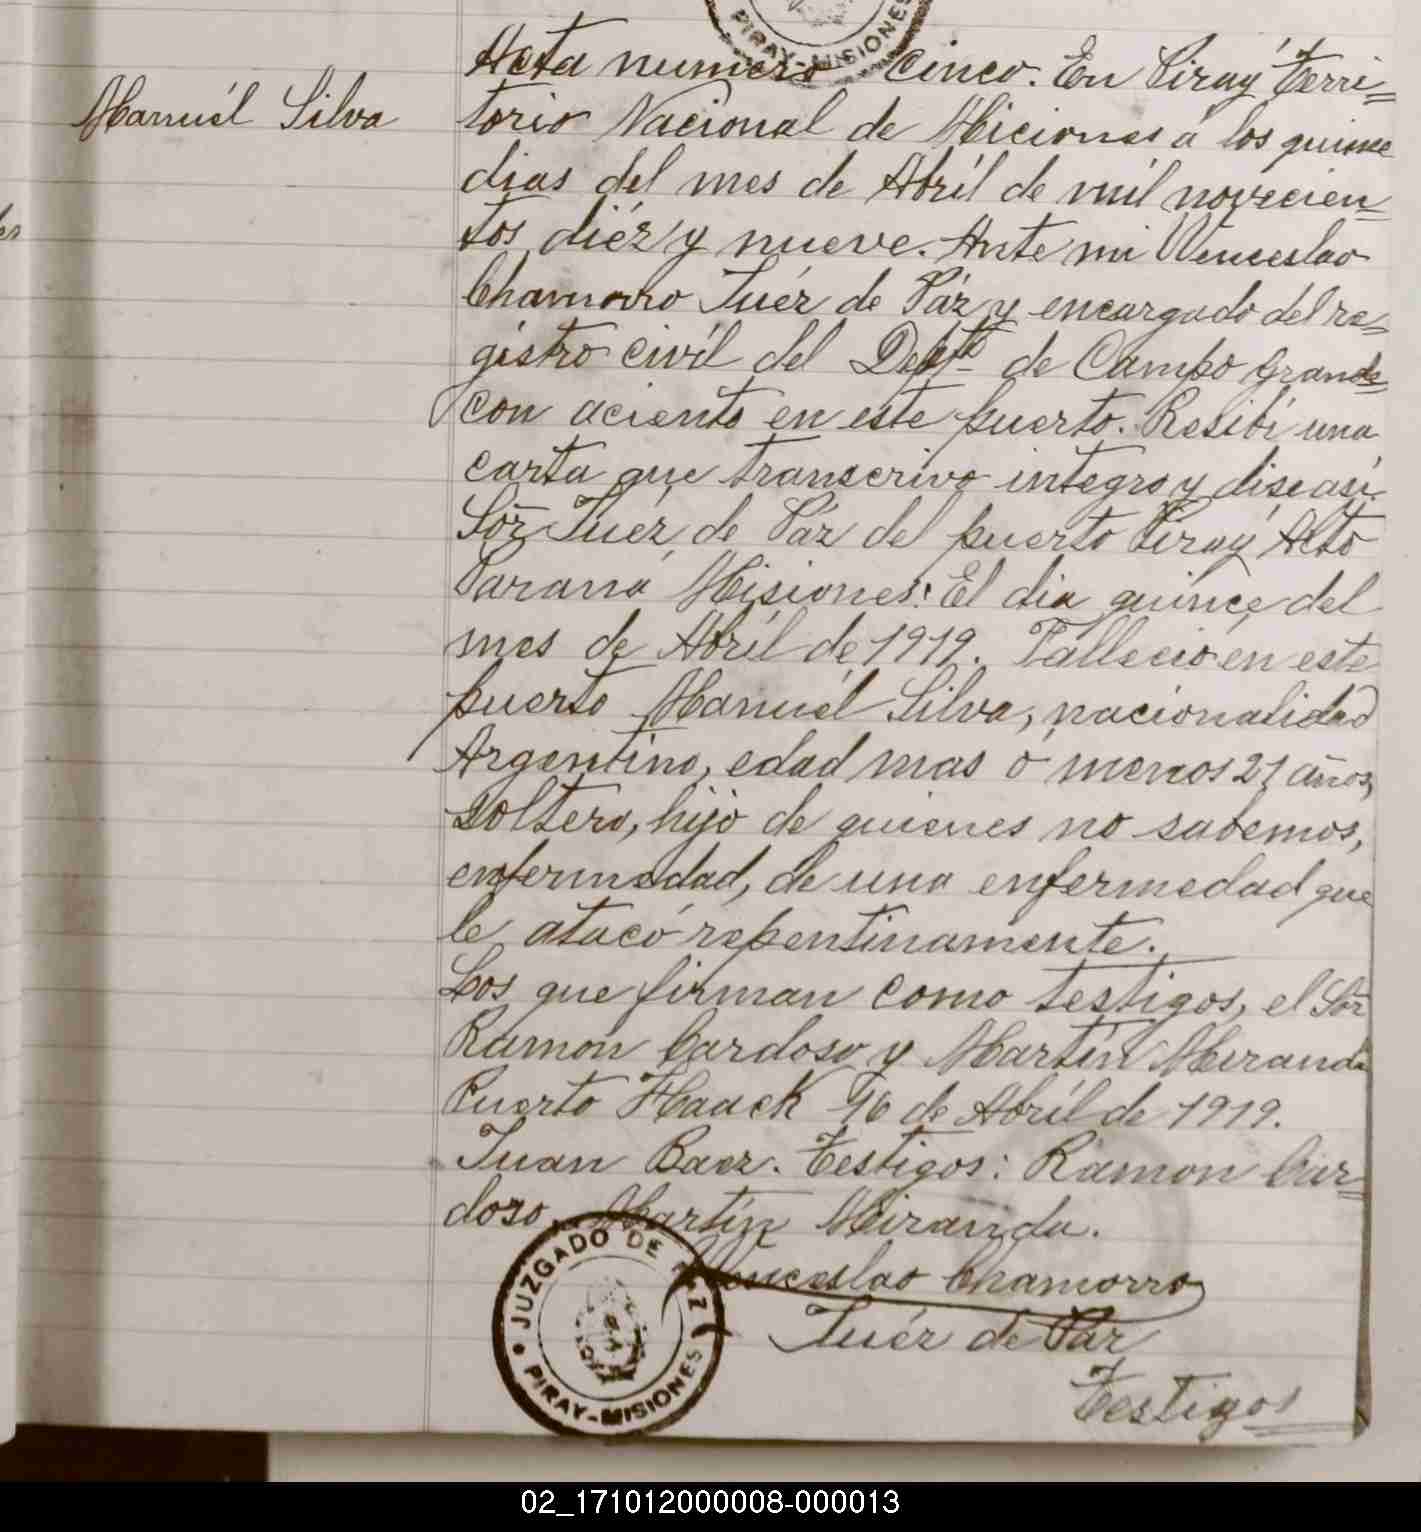 PIRAY-MISIONES
Manuél Silva
Acta numero cinco. En Piray Terri=
torio Nacional de Miciones á los quince
dias del mes de Abríl de míl novecien=
tos diéz y nueve. Ante mi Wenceslao
Chamorro Juéz de Páz y encargado del re=
gistro civíl del Depto de Campo Grande
con aciento en este puerto. Resibí una
carta que transcrivo integro y dise así.
Sor̃ Juéz de Páz del puerto Piray Alto
Paraná Misiones: El dia quince, del
mes de Abríl de 1919. Fallecio en este
puerto Manuél Silva, nacionalidad
Argentino, edad mas ó menos 27 años,
soltero, hijo de quienes no sabemos,
enfermedad, de una enfermedad que
le atacó repentinamente.
Los que firman como testigos, el Sor̃
Ramon Cardoso y Martín Miranda
Puerto Haack 16 de Abríl de 1919.
Juan Baez. Testigos: Ramon Car=
doso, Martín Miranda.
Wenceslao Chamorro
Juéz de Paz
JUZGADO DE PAZ
PIRAY-MISIONES
Testigos
02_171012000008-000013